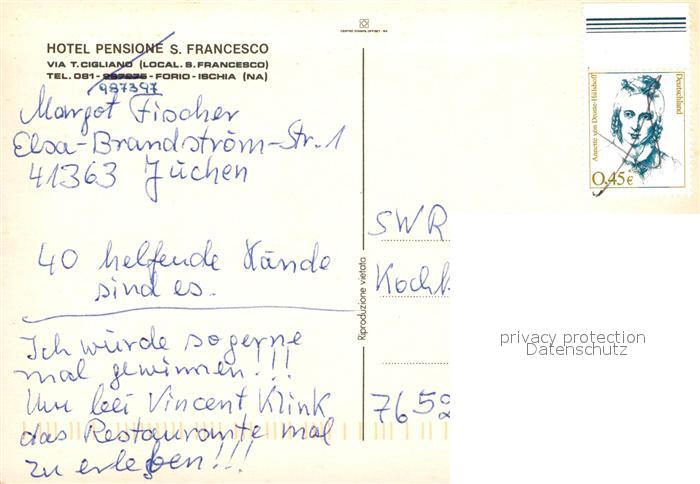 CENTRO STAMPA OFFSET - NA
HOTEL PENSIONE S. FRANCESCO
VIA T. CIGLIANO (LOCAL. S. FRANCESCO)
TEL. 081- - FORIO - ISCHIA (NA)
987397
Margot Fischer
Elsa-Brandström-Str. 1
41363 Jüchen
40 helfende Hände
sind es.
Ich würde sogerne
mal gewinnen!!!
Um bei Vincent Klink
das Restaurante mal
zu erleben!!!
Riproduzione vietata
Annette von Droste-Hülshoff
Deutschland
0,45€
SWR
Koch
7652
privacy protection
Datenschutz